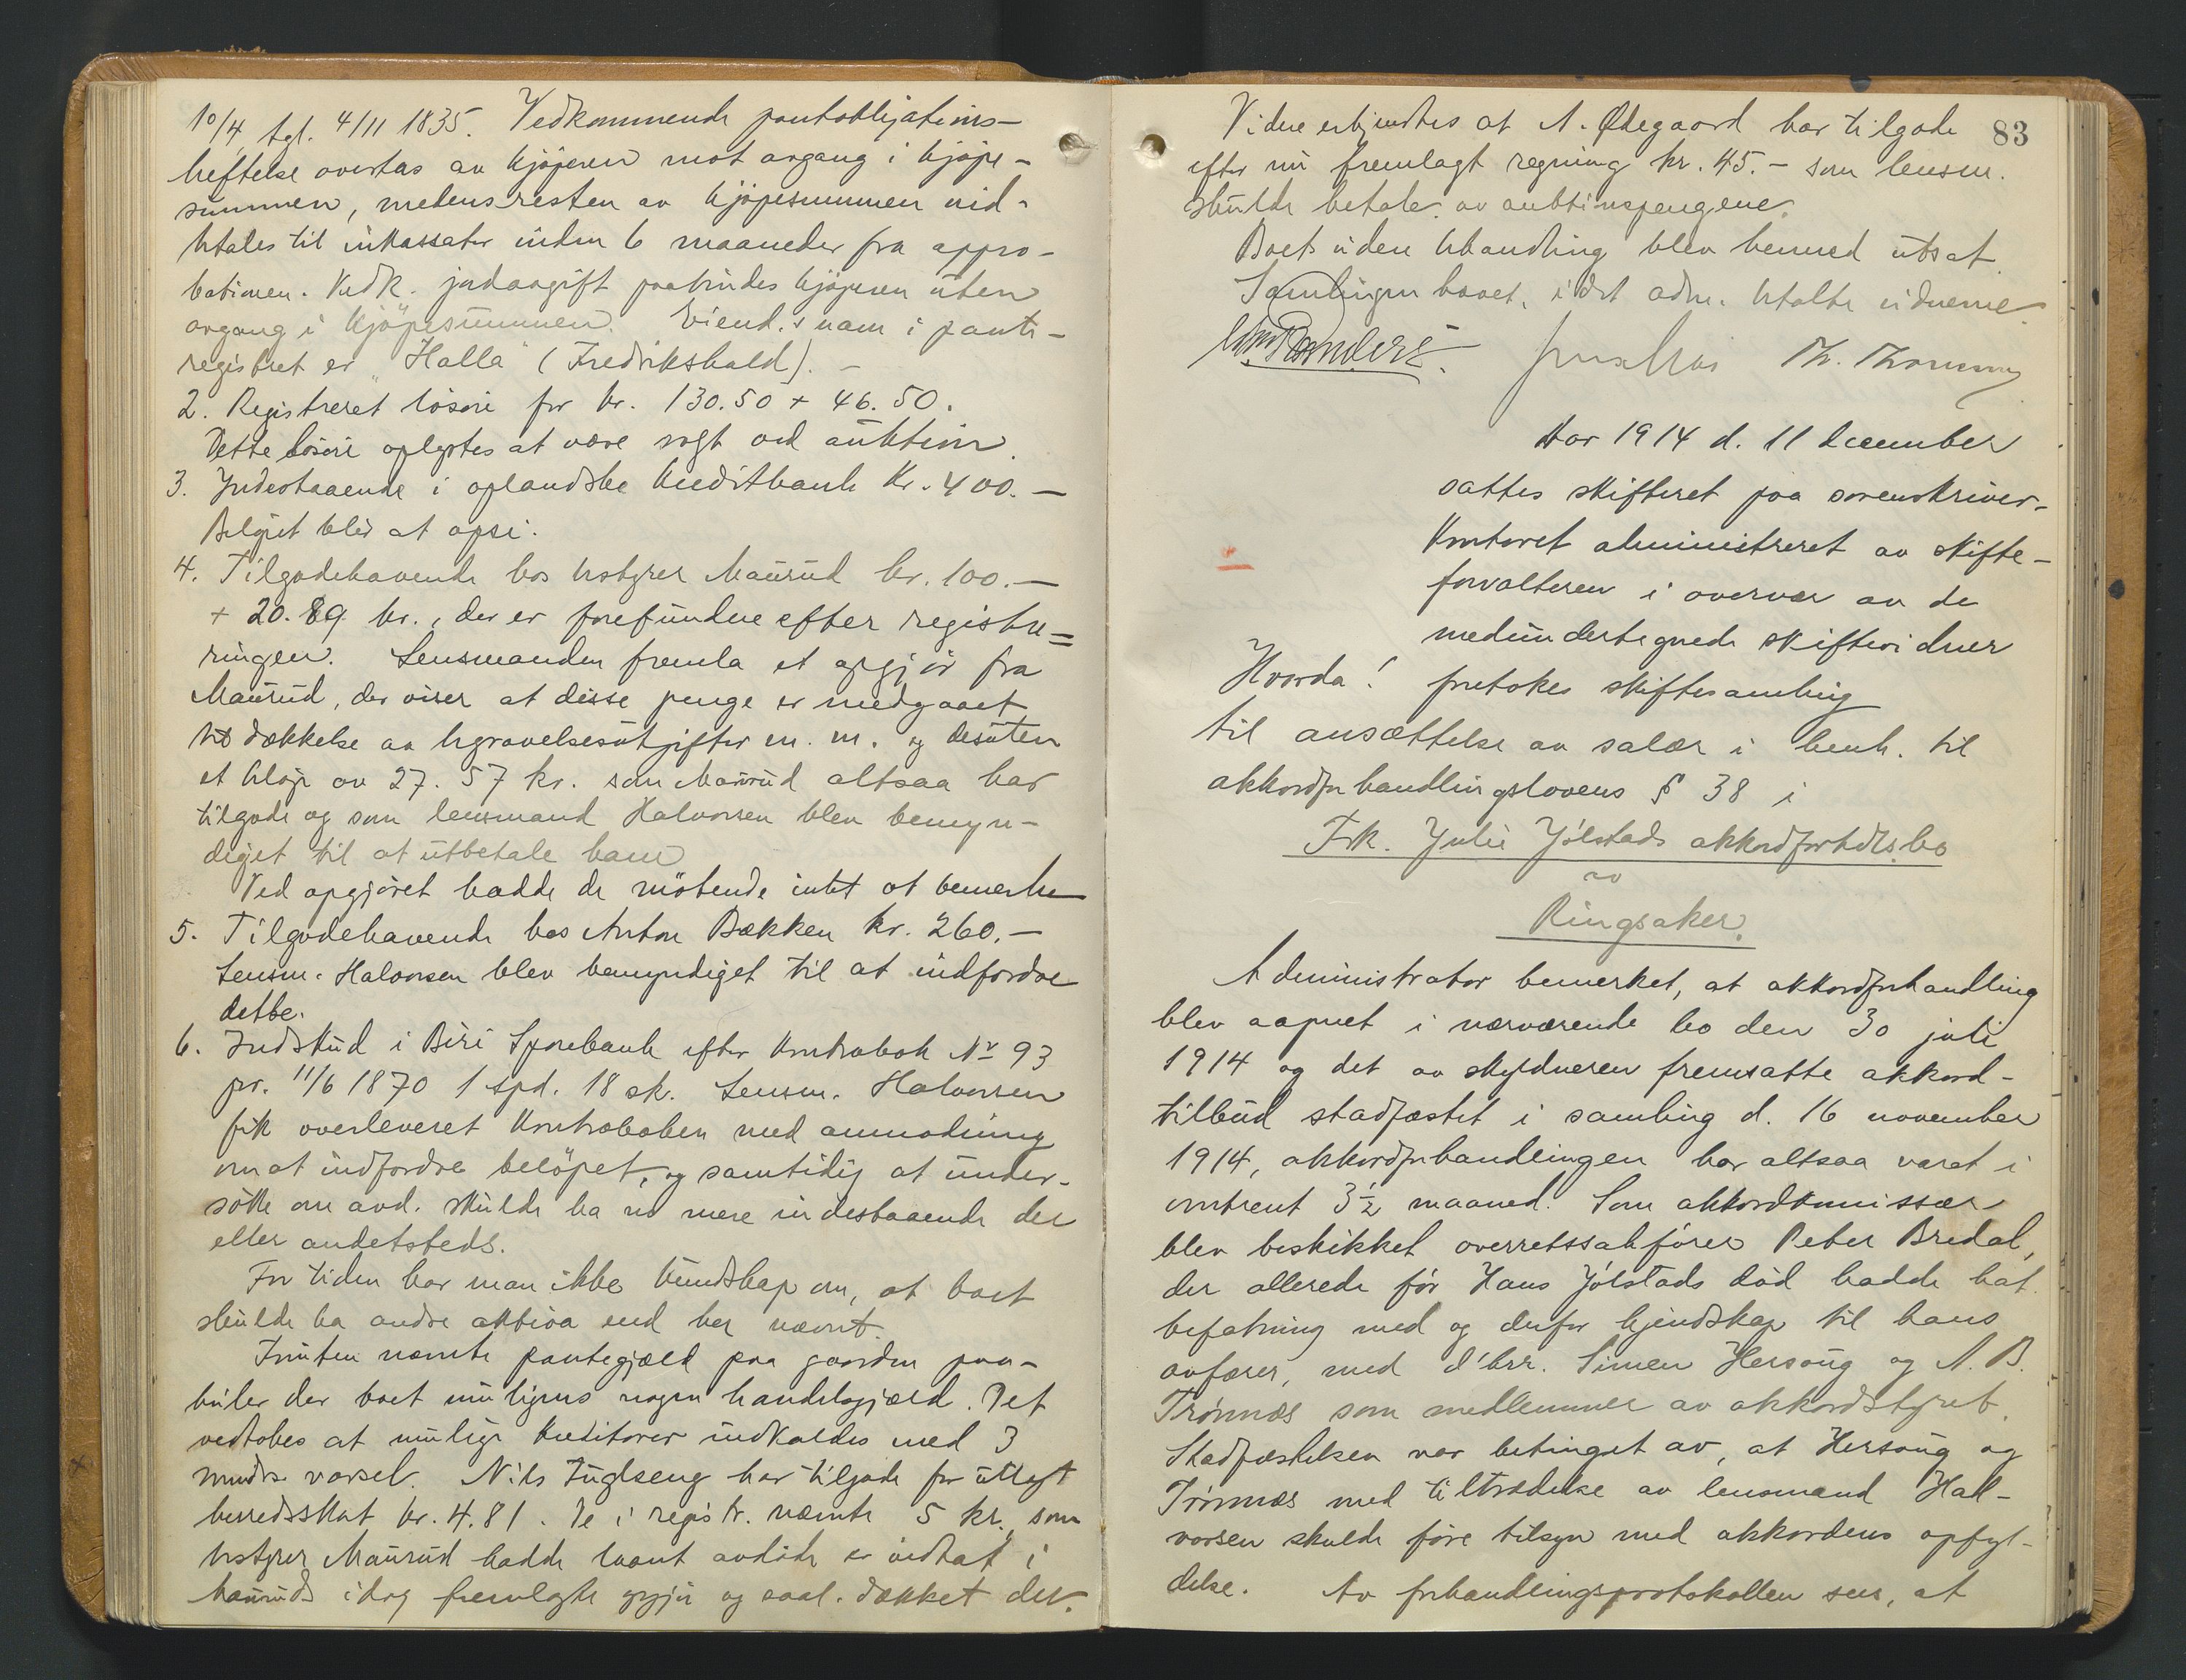 10/4, tgl. 4/11 1835. Vedkommende pantobligations-
heftelse overtas av kjøperen mot avgang i kjøpe-
summen, medens resten av kjøpesummen ind-
betales til inkassator inden 6 maaneder fra appro-
bationen. Vedk. jordavgift paabindes kjøperen uten
avgang i kjøpesummen. Eiend.s navn i pante-
registret er "Halla" (Fredrikshald). -
2. Registreret løsøre for kr. 130.50 + 46.50.
Dette løsøre oplystes at være solgt ved auktion.
3. Indestaaende i oplandske Kreditbank Kr. 400.-
Beløpet blir at opsi.
4. Tilgodehavende hos bestyrer Maurud kr. 100.-
+ 20.89 kr., der er forefundne efter registre=
ringen. Lensmanden fremla et opgjør fra
Maurud, der viser at disse penge er medgaaet
til dækkelse av begravelsesutgifter m. m. og desuten
et beløp av 27.57 kr. som Maurud altsaa har
tilgode og som lensmand Halvorsen blev bemyn-
diget til at utbetale ham
Ved opgjøret hadde de møtende intet at bemerke
5. Tilgodehavende hos Anton Bækken kr. 260.-
Lensm. Halvorsen blev bemyndiget til at indfordre
dette.
6. Indskud i Biri Sparebank efter Kontrabok No 93
pr. 11/6 1870 1 spd. 18 sk. Lensm. Halvorsen
fik overleveret Kontraboken med anmodning
om at indfordre beløpet, og samtidig at under-
søke om avd. skulde ha no mere indestaaende der
eller andetsteds.
For tiden har man ikke kundskap om, at boet
skulde ha andre aktiva end her nævnt.
Foruten nævnte pantegjæld paa gaarden paa-
hviler der boet muligens nogen handelsgjæld. Det
vedtokes at mulige kreditorer indkaldes med 3
mndrs varsel. Nils Fuglseng har tilgode for utlagt
herredsskat kr. 4.81. De i registr. nævnte 5 kr., som
bestyrer Maurud hadde laant avdøde er indtat i
Mauruds idag fremlagte opgjør og saal. dækket der.
83
Videre erkjendtes at A. Ødegaard har tilgode
efter nu fremlagt regning kr. 45.- som lensm.
skulde betale av auktionspengene.
Boets viden behandling blev hermed utsat.
Samlingen hævet, idet adm. betalte vidnerne.
Th.
Aar 1914 d. 11 december
sattes skifteret paa sorenskriver-
Kontoret administreret av skifte-
forvalteren i overvær av de
medundertegnede skiftevidner
Hvorda! foretokes skiftesamling
til ansættelse av salær i henh. til
akkordforhandlingslovens § 38 i
Frk. Julie Jølstads akkordforhdls.bo
av
Ringsaker.
Administrator bemerket, at akkordforhandling
blev aapnet i nærværende bo den 30 juli
1914 og det av skyldneren fremsatte akkord-
tilbud stadfæstet i samling d. 16 november
1914, akkordforhandlingen har altsaa varet i
omtrent 3 1/2 maaned. Som akkordkommissær
blev beskikket overretssakfører Peter Bredal,
der allerede før Hans Jølstads død hadde hat
befatning med og derfor kjendskap til hans
avfærer, med d'hrr. Simen Hersoug og A. B.
Trønnæs som medlemmer av akkordstyret.
Stadfæstelsen var betinget av, at Hersoug og
Trønnæs med tiltrædelse av lensmand Hal-
vorsen skulde føre tilsyn med akkordens opfyl-
delse. Av forhandlingsprotokollen sees, at